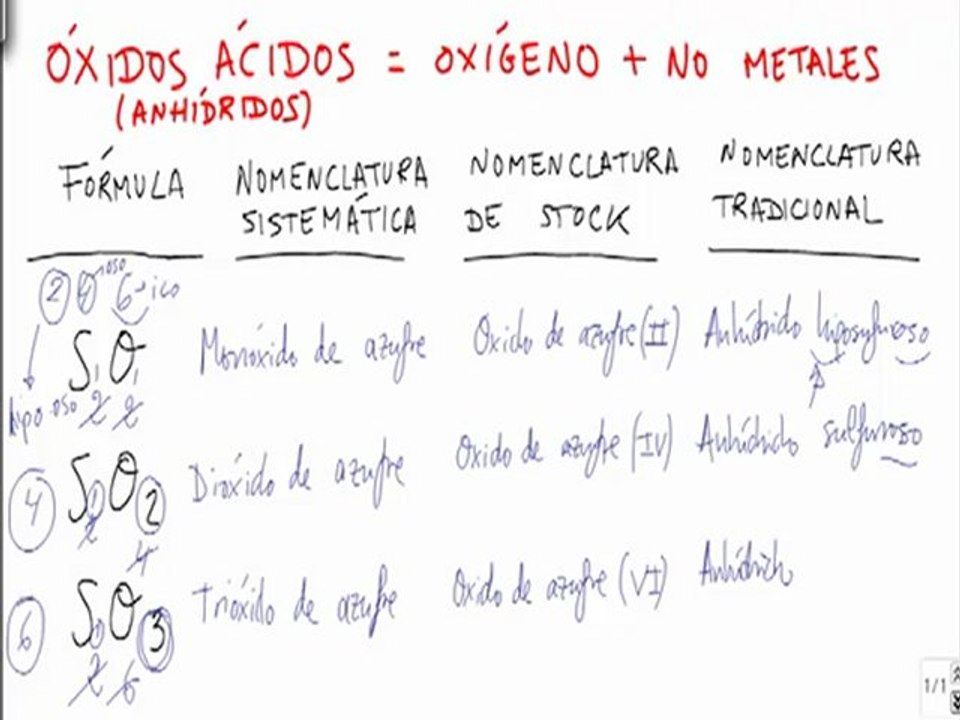 ÓXIDOS ÁCIDOS = OXÍGENO + NO METALES
(ANHÍDRIDOS)
FÓRMULA NOMENCLATURA SISTEMÁTICA NOMENCLATURA DE STOCK NOMENCLATURA TRADICIONAL
2 4 oso 6 - ico
S1O1 Monóxido de azufre Oxido de azufre (II) Anhídrido hiposulfuroso
hipo oso 2 2
4 S1O2 Dióxido de azufre Oxido de azufre (IV) Anhídrido sulfuroso
2 4
6 S1O3 Trióxido de azufre Oxido de azufre (VI) Anhídrido
2 6
1/1